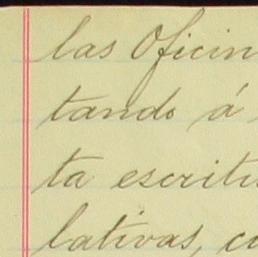 las Oficin
tando á
ta escritu
lativas, co